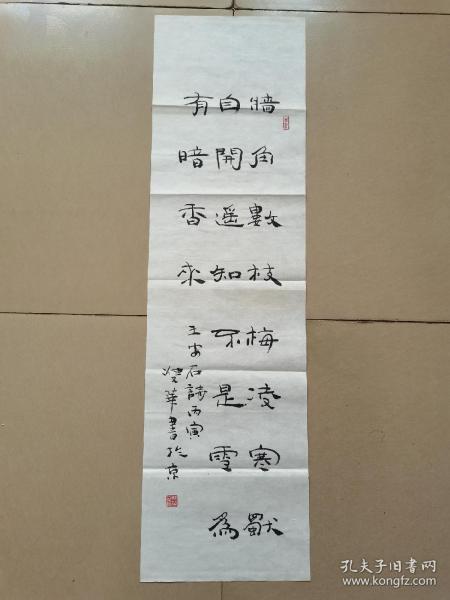 牆角數枝梅凌寒獨
自開遥知不是雪為
有暗香來
王安石詩丙寅
華書於京
孔夫子旧书网
www.kongfz.com